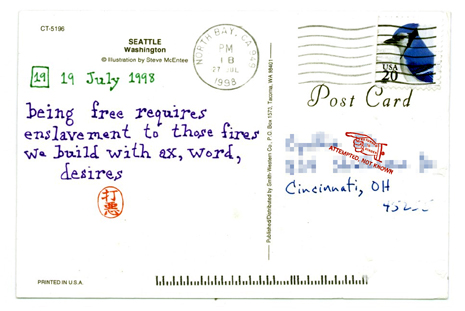 CT-5196
SEATTLE
Washington
© Illustration by Steve McEntee
19 19 July 1998
being free requires
enslavement to those fires
we build with ax, word,
desires
PRINTED IN U.S.A.
Published/Distributed by Smith-Western Co., P.O. Box 1073, Tacoma, WA 98401
NORTH BAY, CA
PM
1998
USA
20
Post Card
ATTEMPTED, NOT KNOWN
Cincinnati, OH